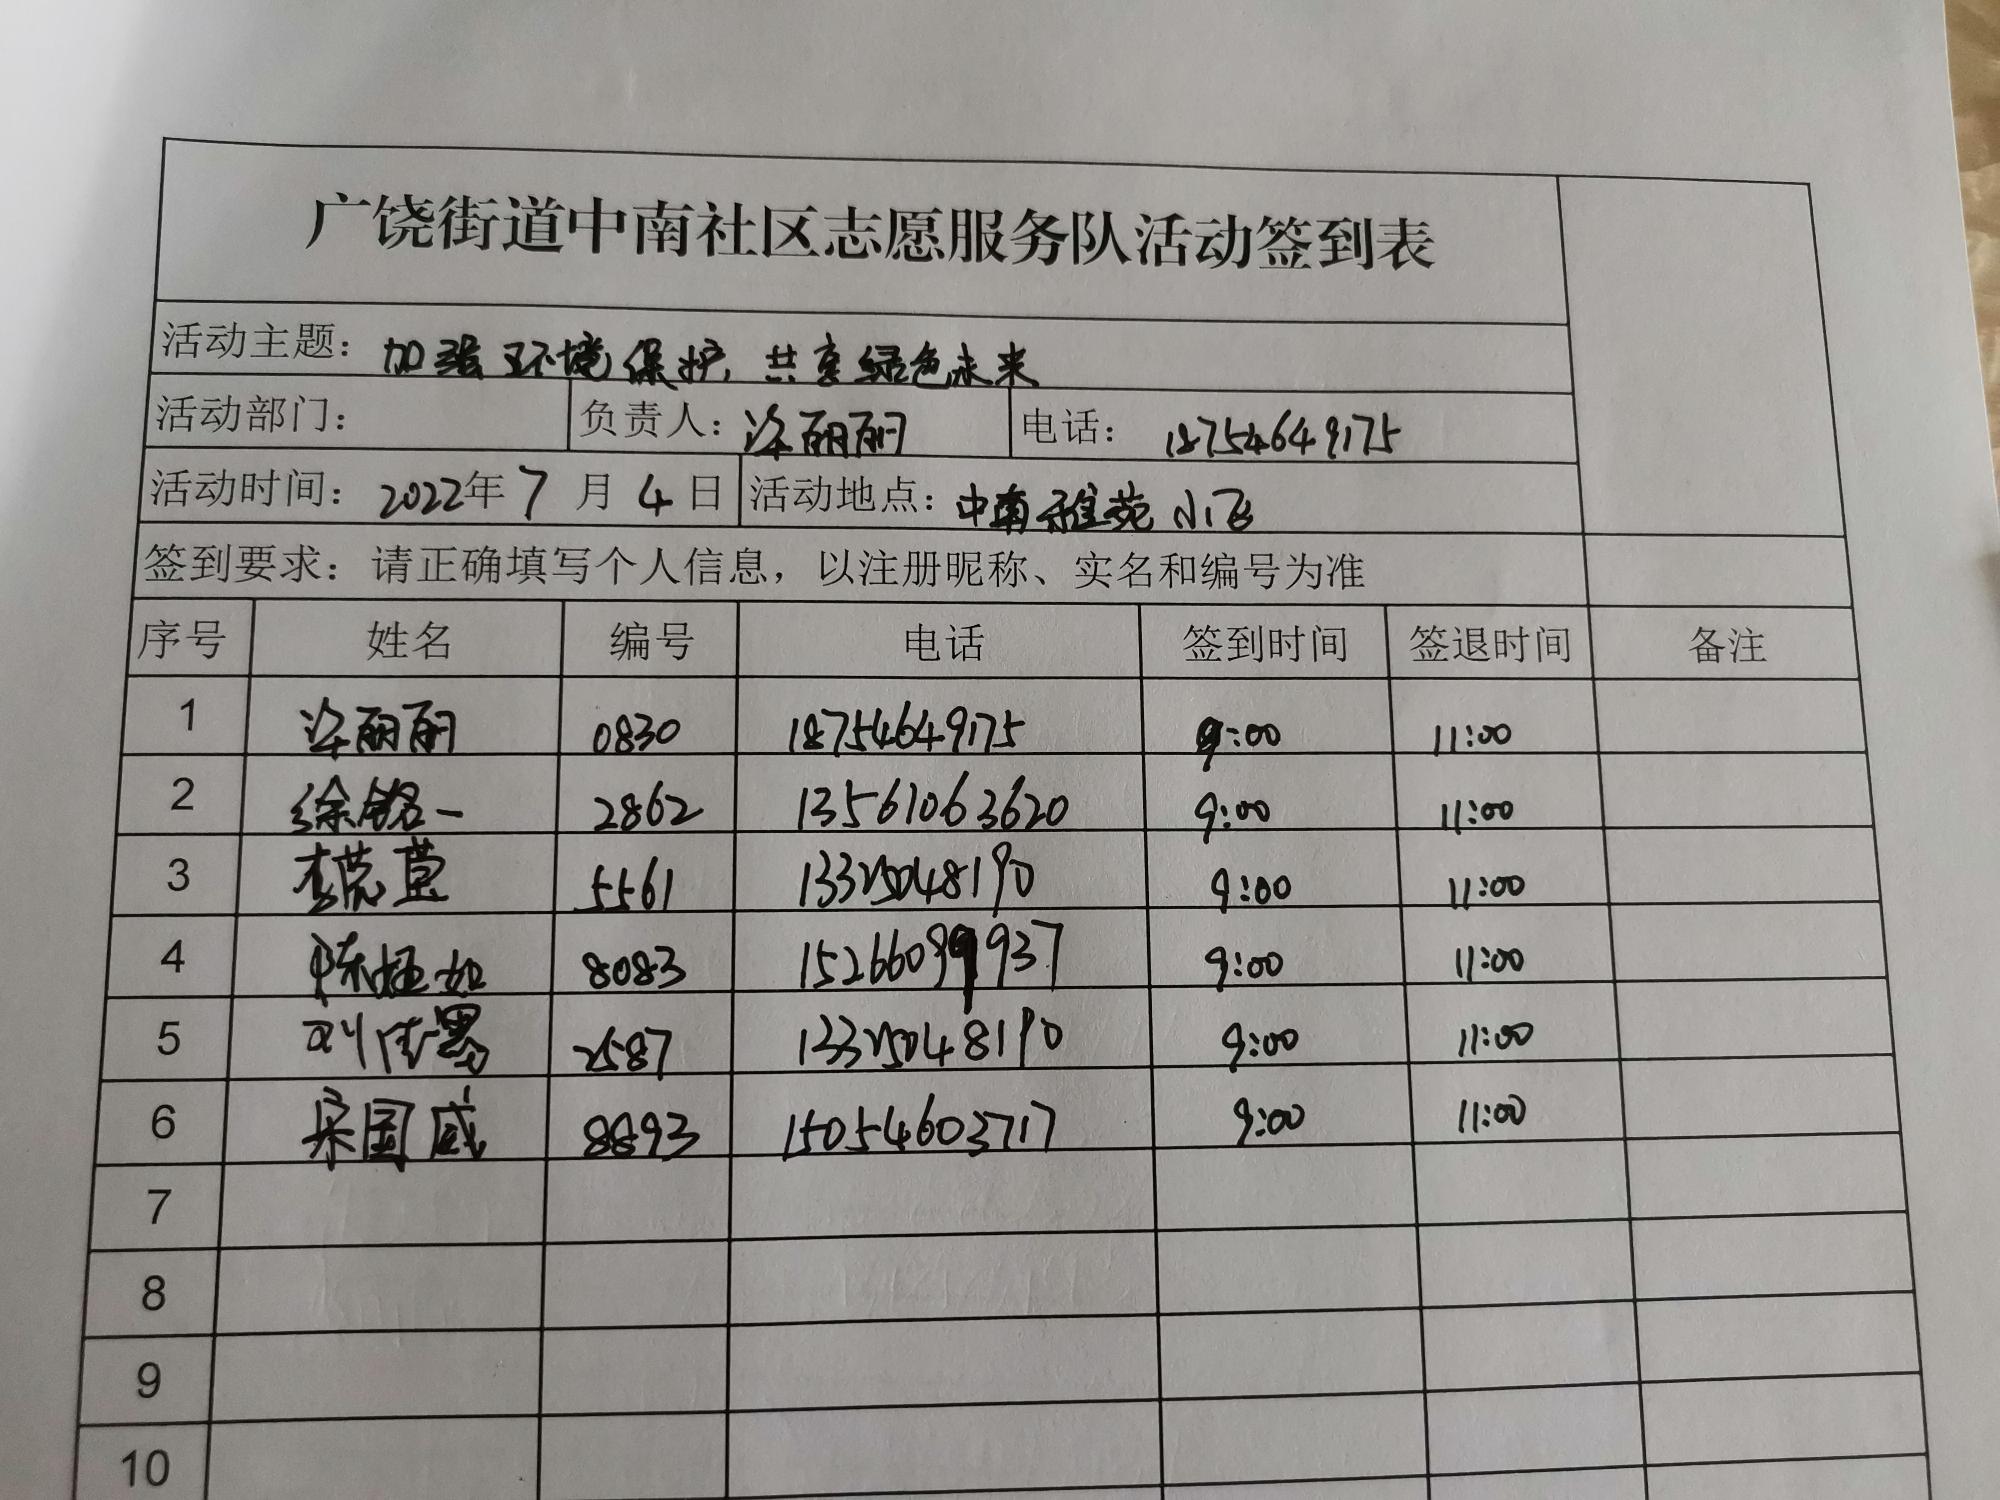 广饶街道中南社区志愿服务队活动签到表
活动主题：加强环境保护，共享绿色未来
活动部门： 负责人：丽丽 电话：18754649175
活动时间：2022年7月4日 活动地点：中南雅苑小区
签到要求：请正确填写个人信息，以注册昵称、实名和编号为准
序号 姓名 编号 电话 签到时间 签退时间 备注
1 丽丽 0830 18754649175 9:00 11:00
2 徐铭一 2862 13561063620 9:00 11:00
3 5561 13325048190 9:00 11:00
4 陈 如 8083 9:00 11:00
5 刘佳 2587 13325048190 9:00 11:00
6 国威 8893 15054603717 9:00 11:00
7
8
9
10